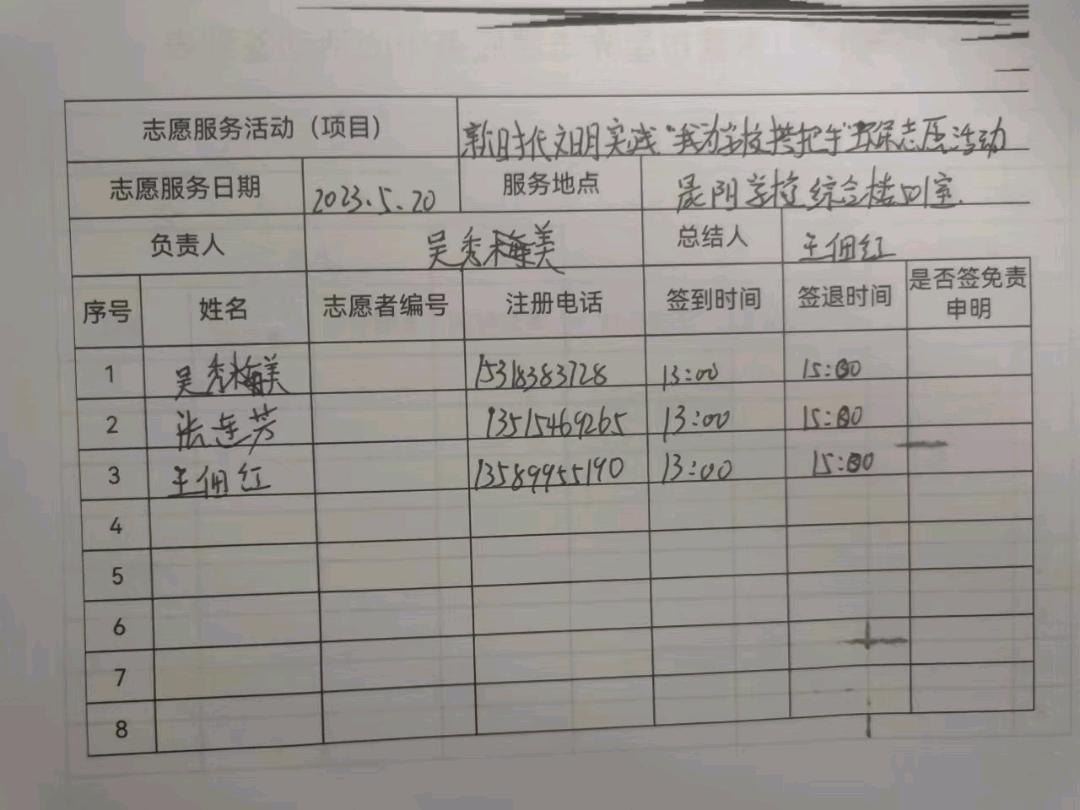 志愿服务活动（项目） 新时代文明实践"我为学校搭把手"环保志愿活动
志愿服务日期 2023.5.20 服务地点 晨阳学校综合楼四室
负责人 吴秀梅美 总结人 王佃红
序号 姓名 志愿者编号 注册电话 签到时间 签退时间 是否签免责申明
1 吴秀梅美 15318383728 13:00 15:00
2 张连芳 13515469265 13:00 15:00
3 王佃红 13589955190 13:00 15:00
4
5
6
7
8